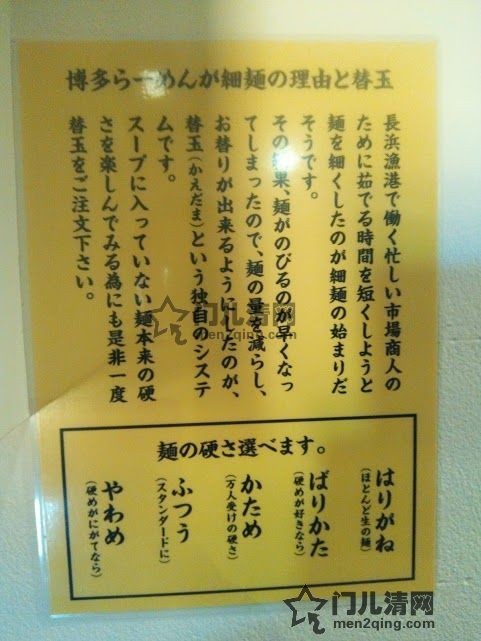 博多らーめんが細麺の理由と替玉
長浜漁港で働く忙しい市場商人の
ために茹でる時間を短くしようと
麺を細くしたのが細麺の始まりだ
そうです。
その結果、麺がのびるのが早くなっ
てしまったので、麺の量を減らし、
お替りが出来るようにしたのが、
替玉(かえだま)という独自のシステ
ムです。
スープに入っていない麺本来の硬
さを楽しんでみる為にも是非一度
替玉をご注文下さい。
麺の硬さ選べます。
はりがね
(ほとんど生の麺)
ばりかた
(硬めが好きなら)
かため
(万人受けの硬さ)
ふつう
(スタンダードに)
やわめ
(硬めがにがてなら)
门儿清网
men2qing.com
门儿清网
men2qing.com